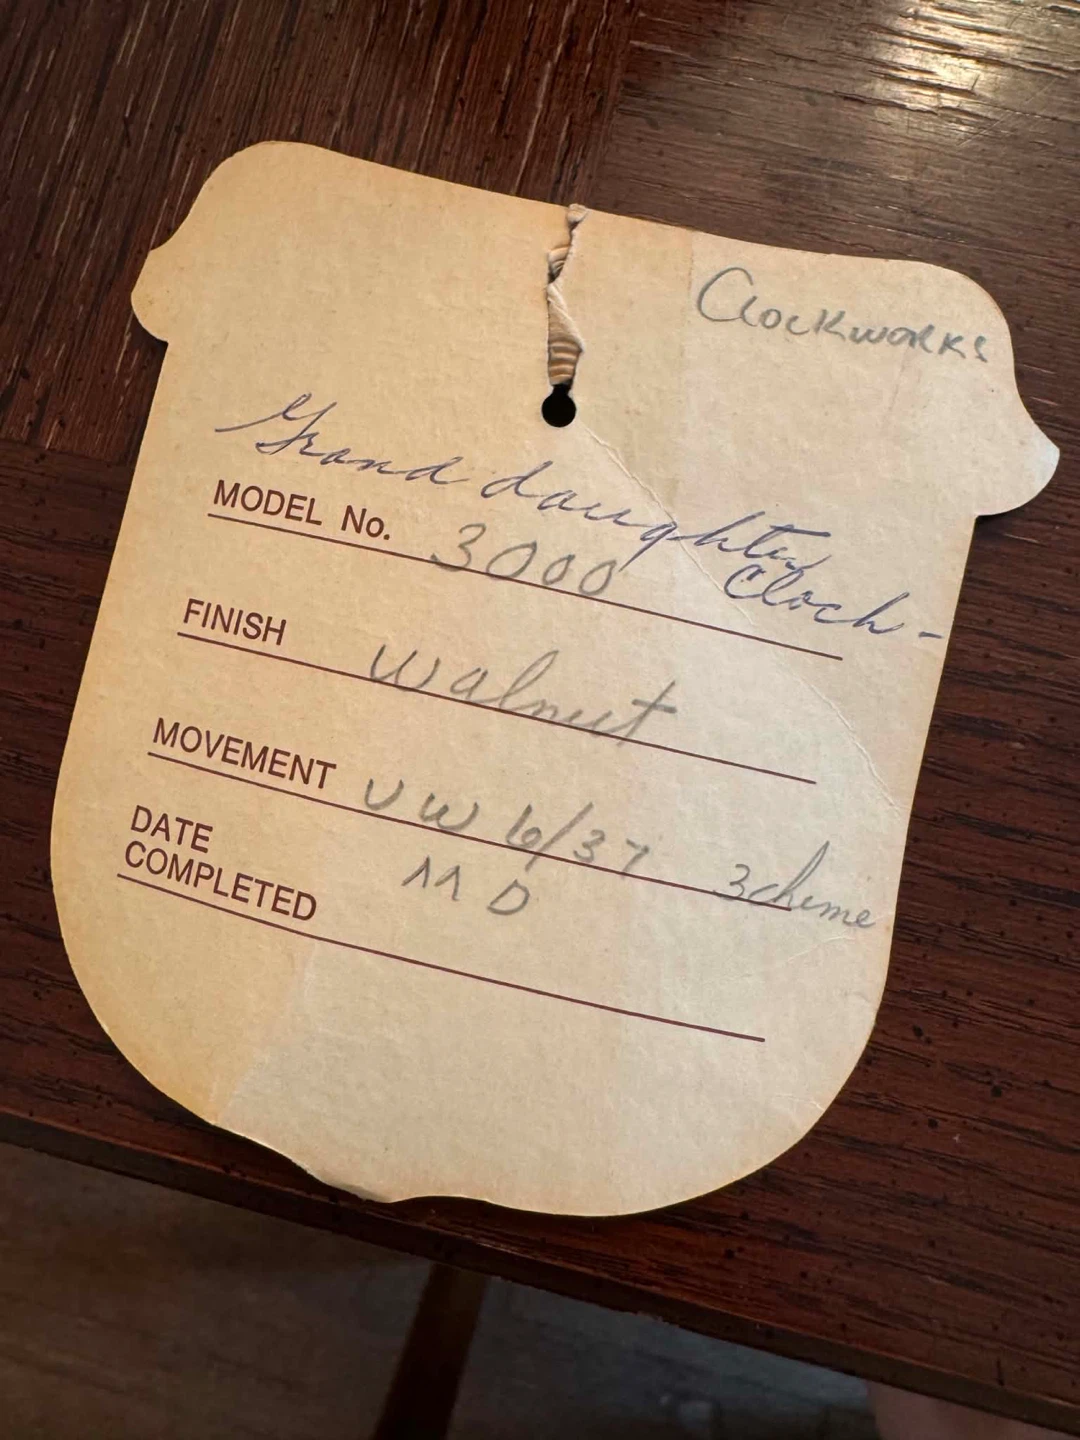 Clockworks
Grand daughter
Clock -
MODEL No. 3000
FINISH Walnut
MOVEMENT UW 6/37 3 chime
DATE
COMPLETED
M D